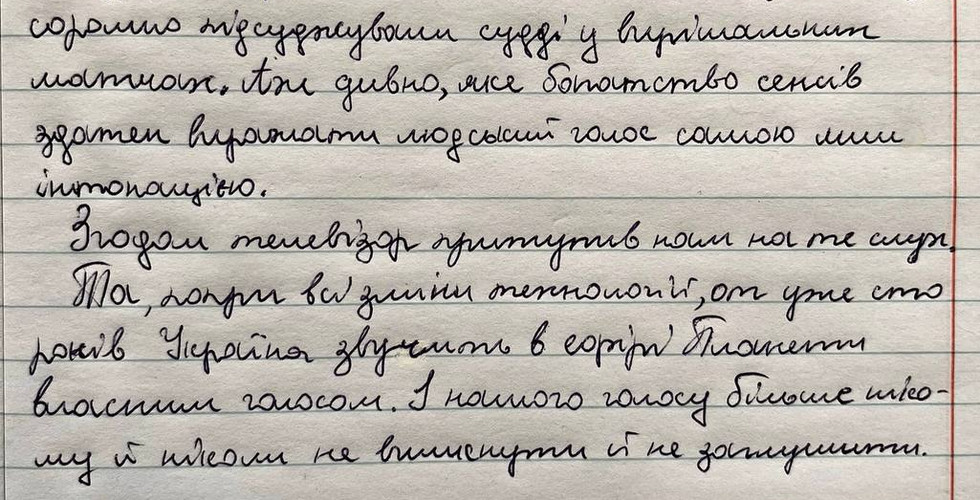 соромно підсуджували судді у вирішальних
матчах. Аж дивно, яке богатство сенсів
здатен виражати людський голос самою лиш
інтонацією.
Згодом телевізор притупив нам на те слух.
Та, попри всі зміни технології, от уже сто
років Україна звучить в ефірі Планети
власним голосом. І нашого голосу більше ніко-
му й ніколи не вимкнути й не заглушити.